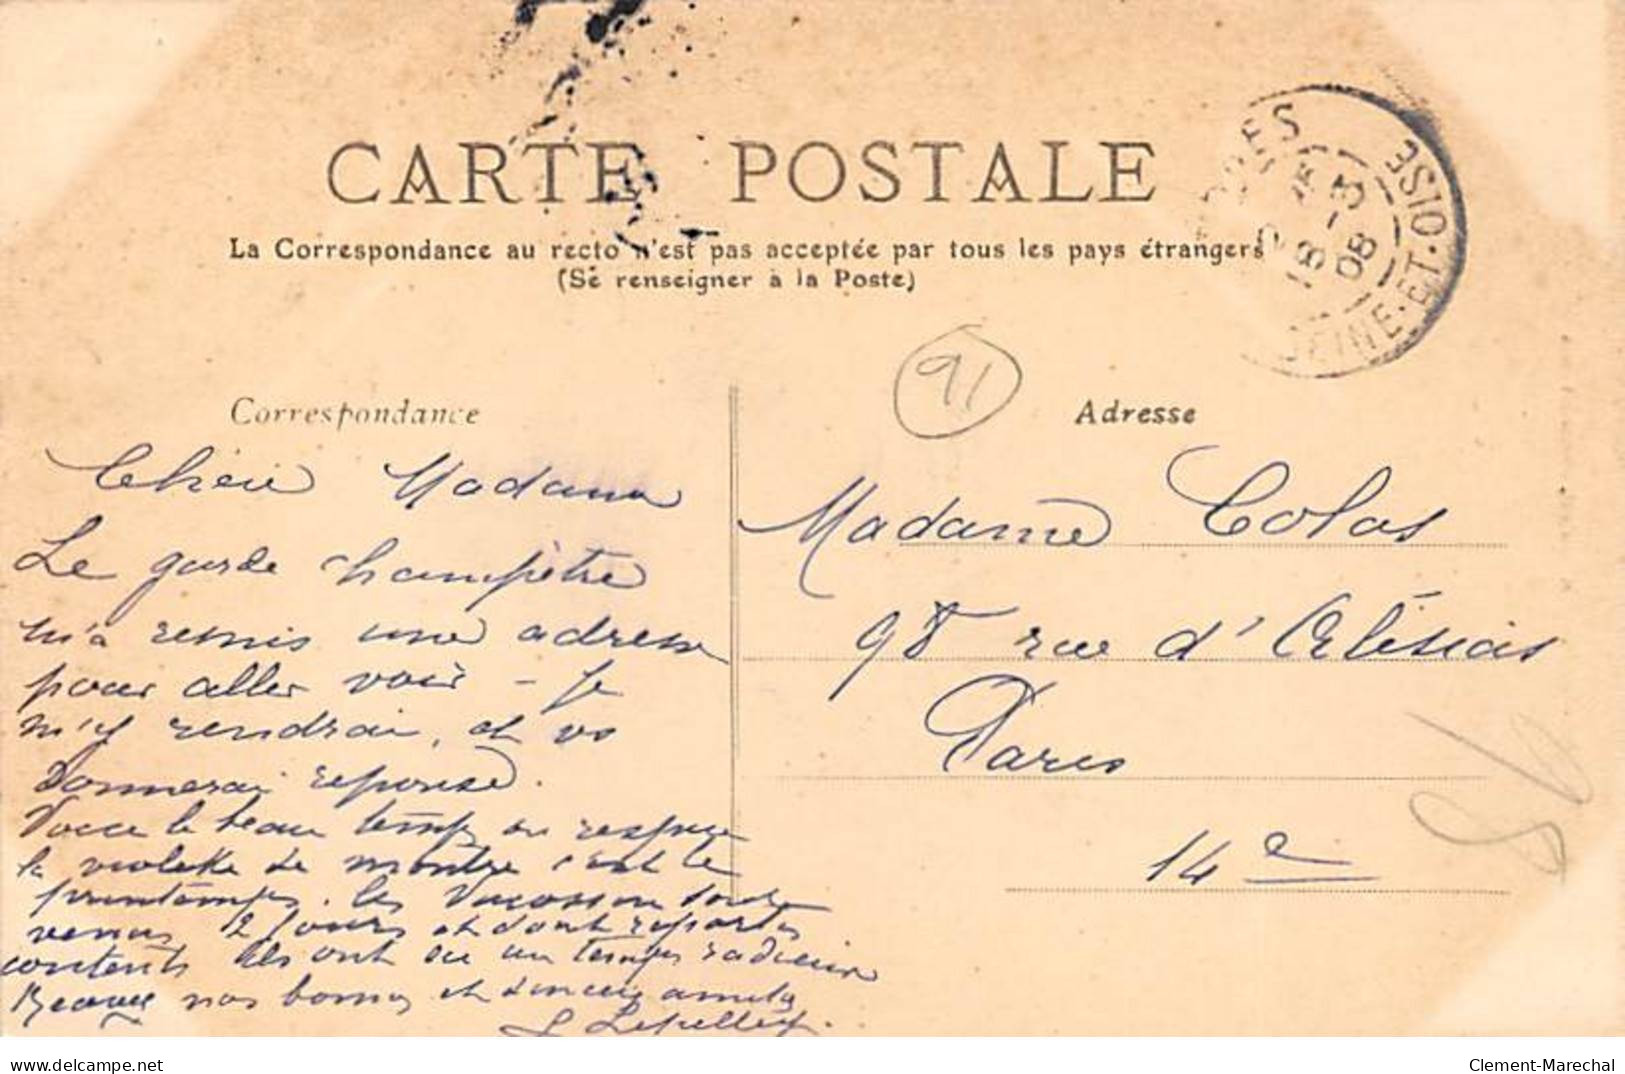 CARTE POSTALE
La Correspondance au recto n'est pas acceptée par tous les pays étrangers
(Se renseigner à la Poste)
RES
SEINE-ET-OISE
18 -3
08
91
Correspondance
Chère Madame
Le garde champêtre
m'a remis une adresse
pour aller voir – Je
m'y rendrai, et vs
donnerai reponse.
Voici le beau temps on respire
la violette se montre c'est le
printemps. les sont
venus 2 jours et sont repartis
contents ils ont eu un temps radieux
Recevez nos bonnes et amitiés
Adresse
Madame Colas
98 rue d'Alésias
Paris
14e
delcampe.net
Clement-Marechal